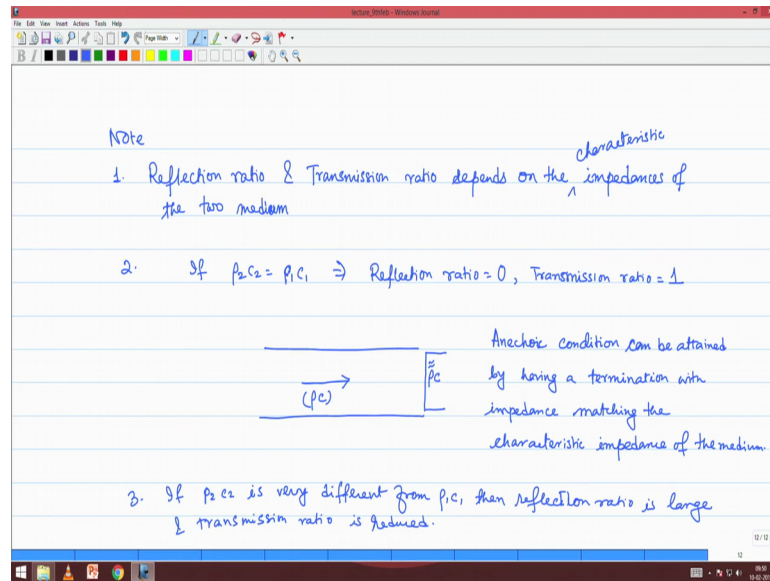 lecture_9thfeb - Windows Journal
File Edit View Insert Actions Tools Help
Page Width
B I
Note
characteristic
1. Reflection ratio & Transmission ratio depends on the ^ impedances of
the two medium
2. If ρ₂c₂ = ρ₁c₁ ⇒ Reflection ratio = 0, Transmission ratio = 1
Anechoic condition can be attained
by having a termination with
impedance matching the
characteristic impedance of the medium.
(ρc)
≈ρc
3. If ρ₂c₂ is very different from ρ₁c₁ then reflection ratio is large
& transmission ratio is reduced.
12/12
12
09:50
10-02-